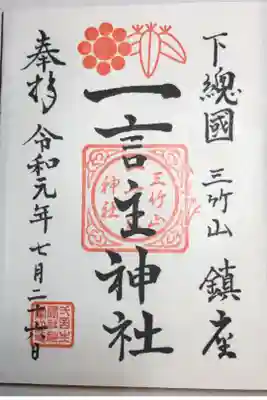 下總國 三竹山 鎮座
一言主神社
三竹山
神社
奉拝 令和元年七月二十六日